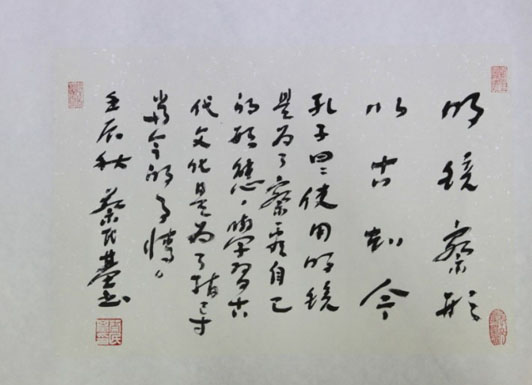 明镜察形
以古制今
孔子曰:使用明镜
是为了察看自己
的形态,学习古
代文化是为了指导
当今的事情。
壬辰秋 蔡民书